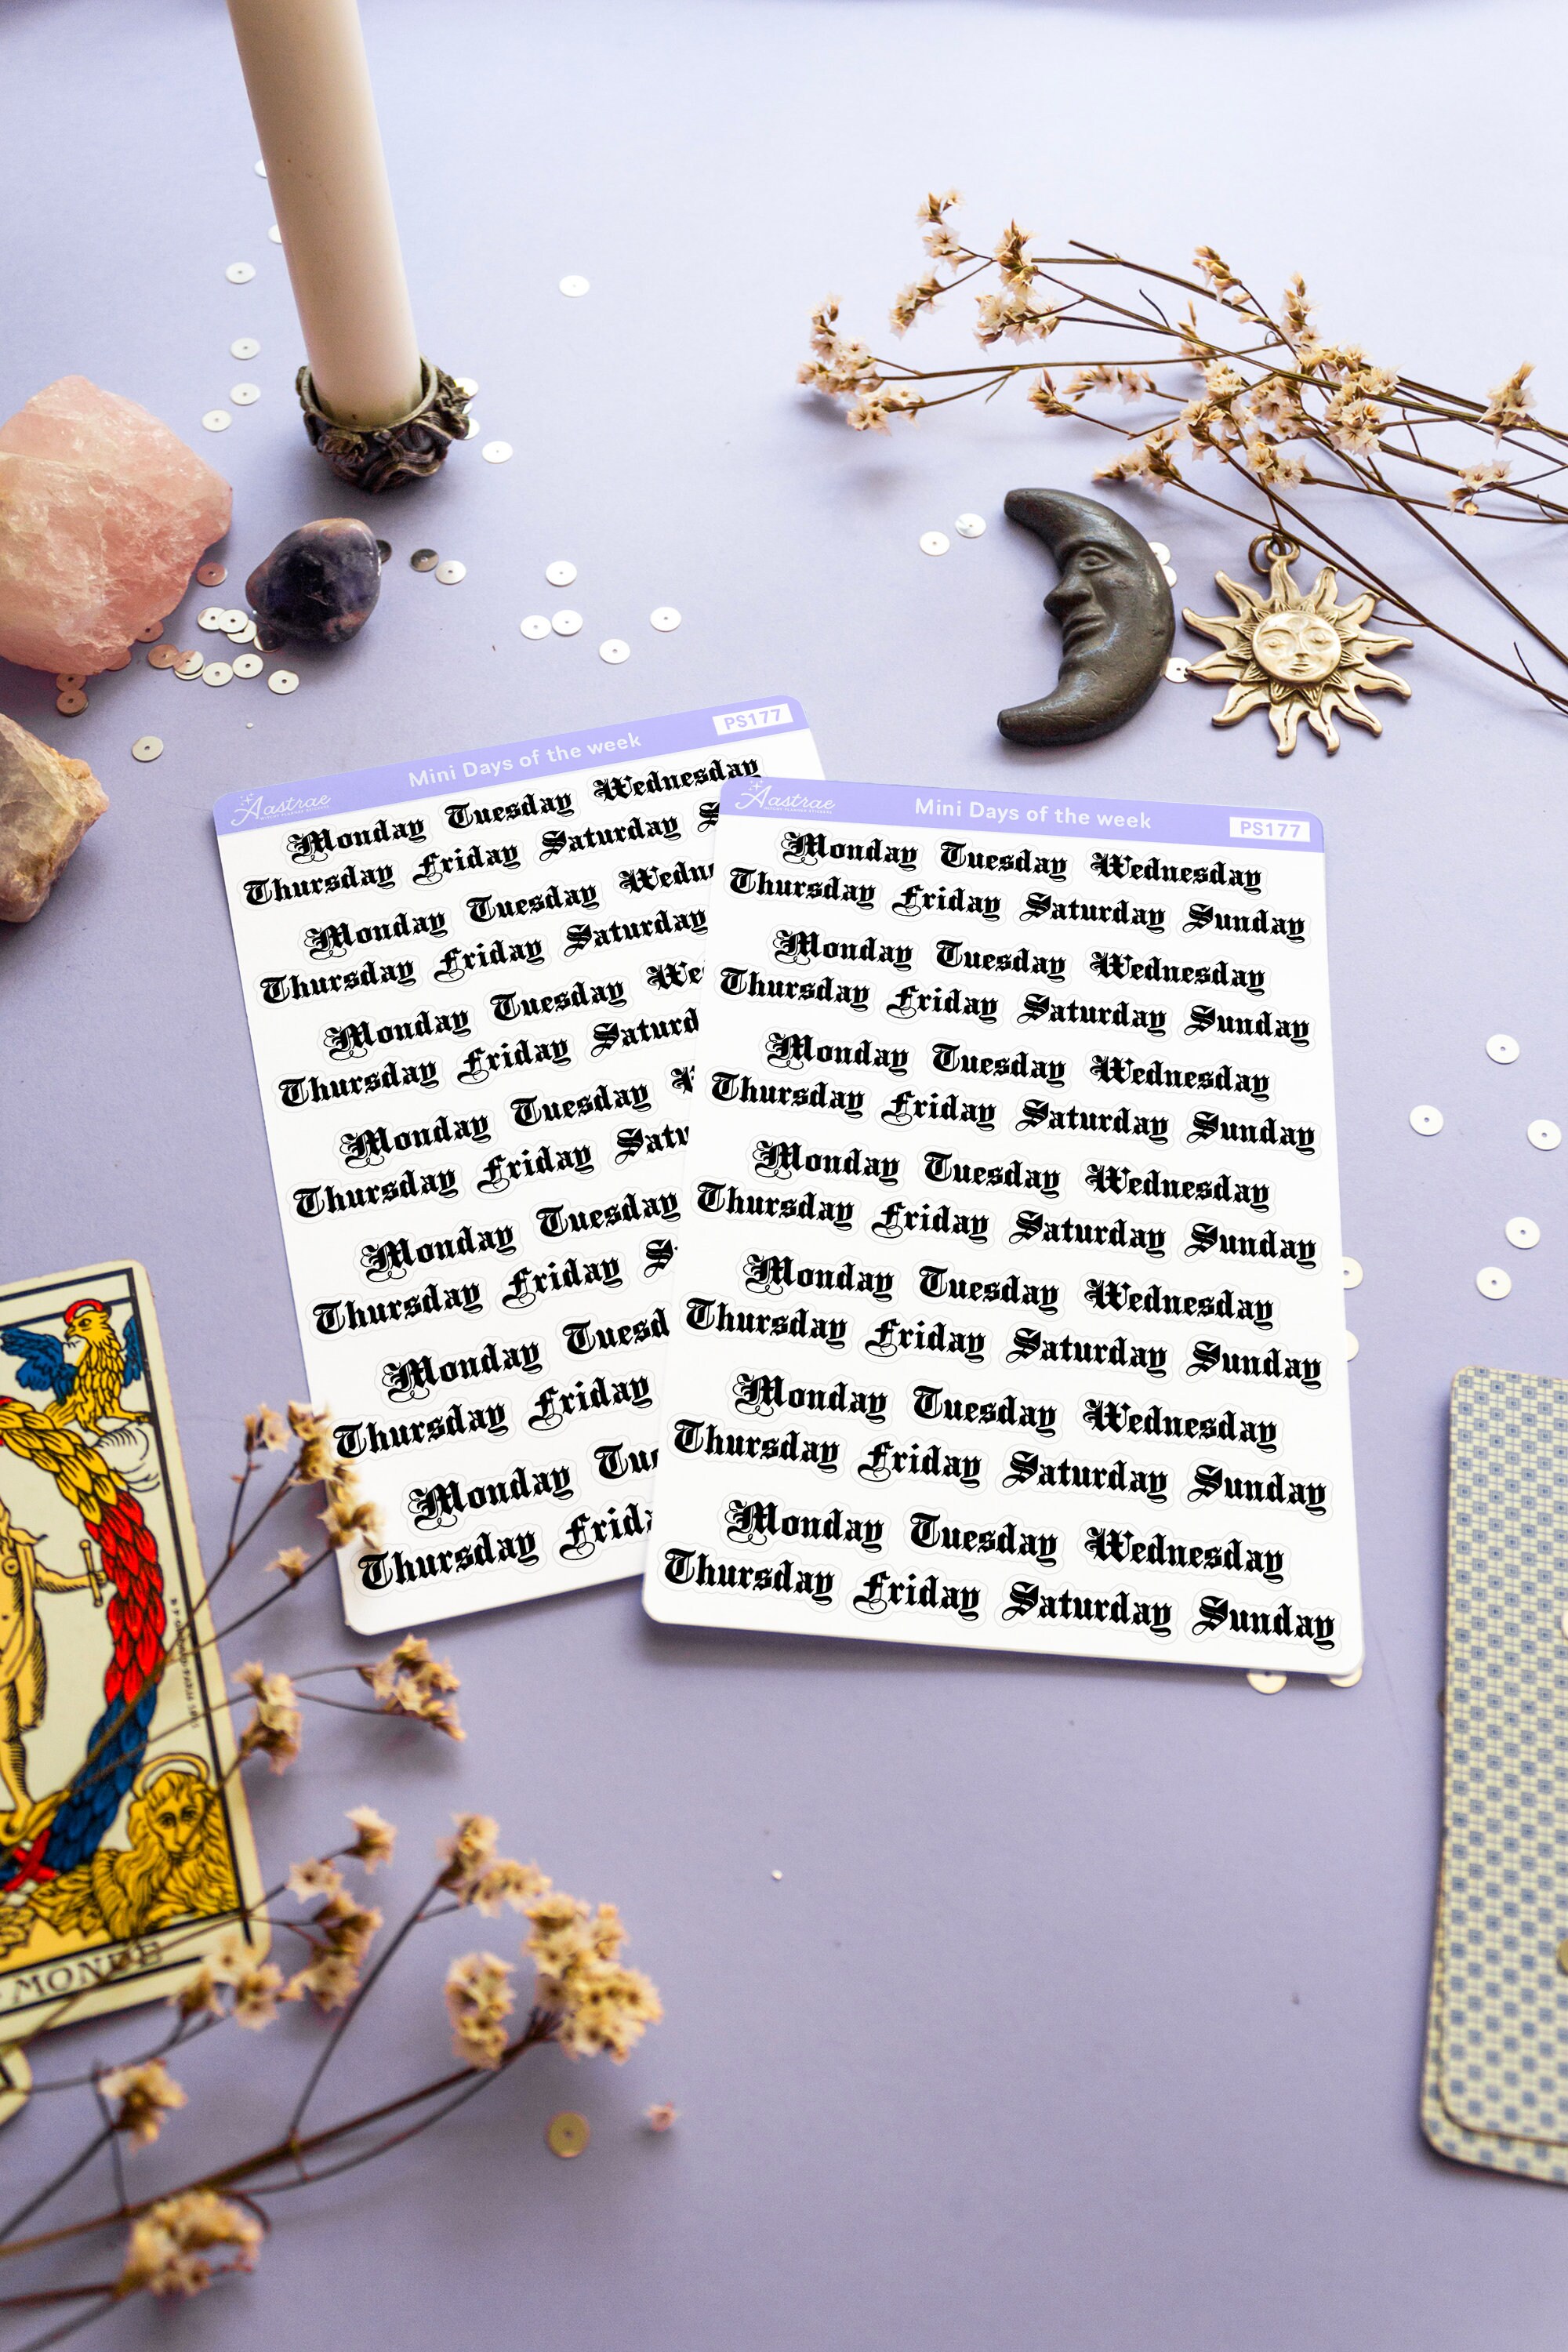 Aastrae Mini Days of the week PS177
Monday Tuesday Wednesday
Thursday Friday Saturday S
Monday Tuesday Wedn
Thursday Friday Saturday
Monday Tuesday We
Thursday Friday Saturd
Monday Tuesday
Thursday Friday Satu
Monday Tuesday
Thursday Friday S
Monday Tuesd
Thursday Friday
Monday Tue
Thursday Frida
Aastrae Mini Days of the week PS177
Monday Tuesday Wednesday
Thursday Friday Saturday Sunday
Monday Tuesday Wednesday
Thursday Friday Saturday Sunday
Monday Tuesday Wednesday
Thursday Friday Saturday Sunday
Monday Tuesday Wednesday
Thursday Friday Saturday Sunday
Monday Tuesday Wednesday
Thursday Friday Saturday Sunday
Monday Tuesday Wednesday
Thursday Friday Saturday Sunday
Monday Tuesday Wednesday
Thursday Friday Saturday Sunday
MONDE